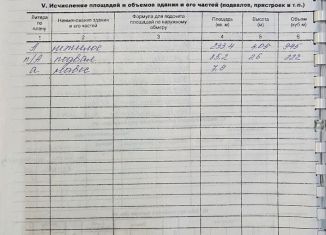 V. Исчисление площадей и объемов здания и его частей (подвалов, пристроек и т.п.)
Литера по плану
Наименование здания и его частей
Формула для подсчета площадей по наружному обмеру
Площадь (кв. м)
Высота (м)
Объем (куб. м)
1 2 3 4 5 6
А нежилое 233.4 4.05 945
п/А подвал 85.2 2.6 222
а навес 7.9